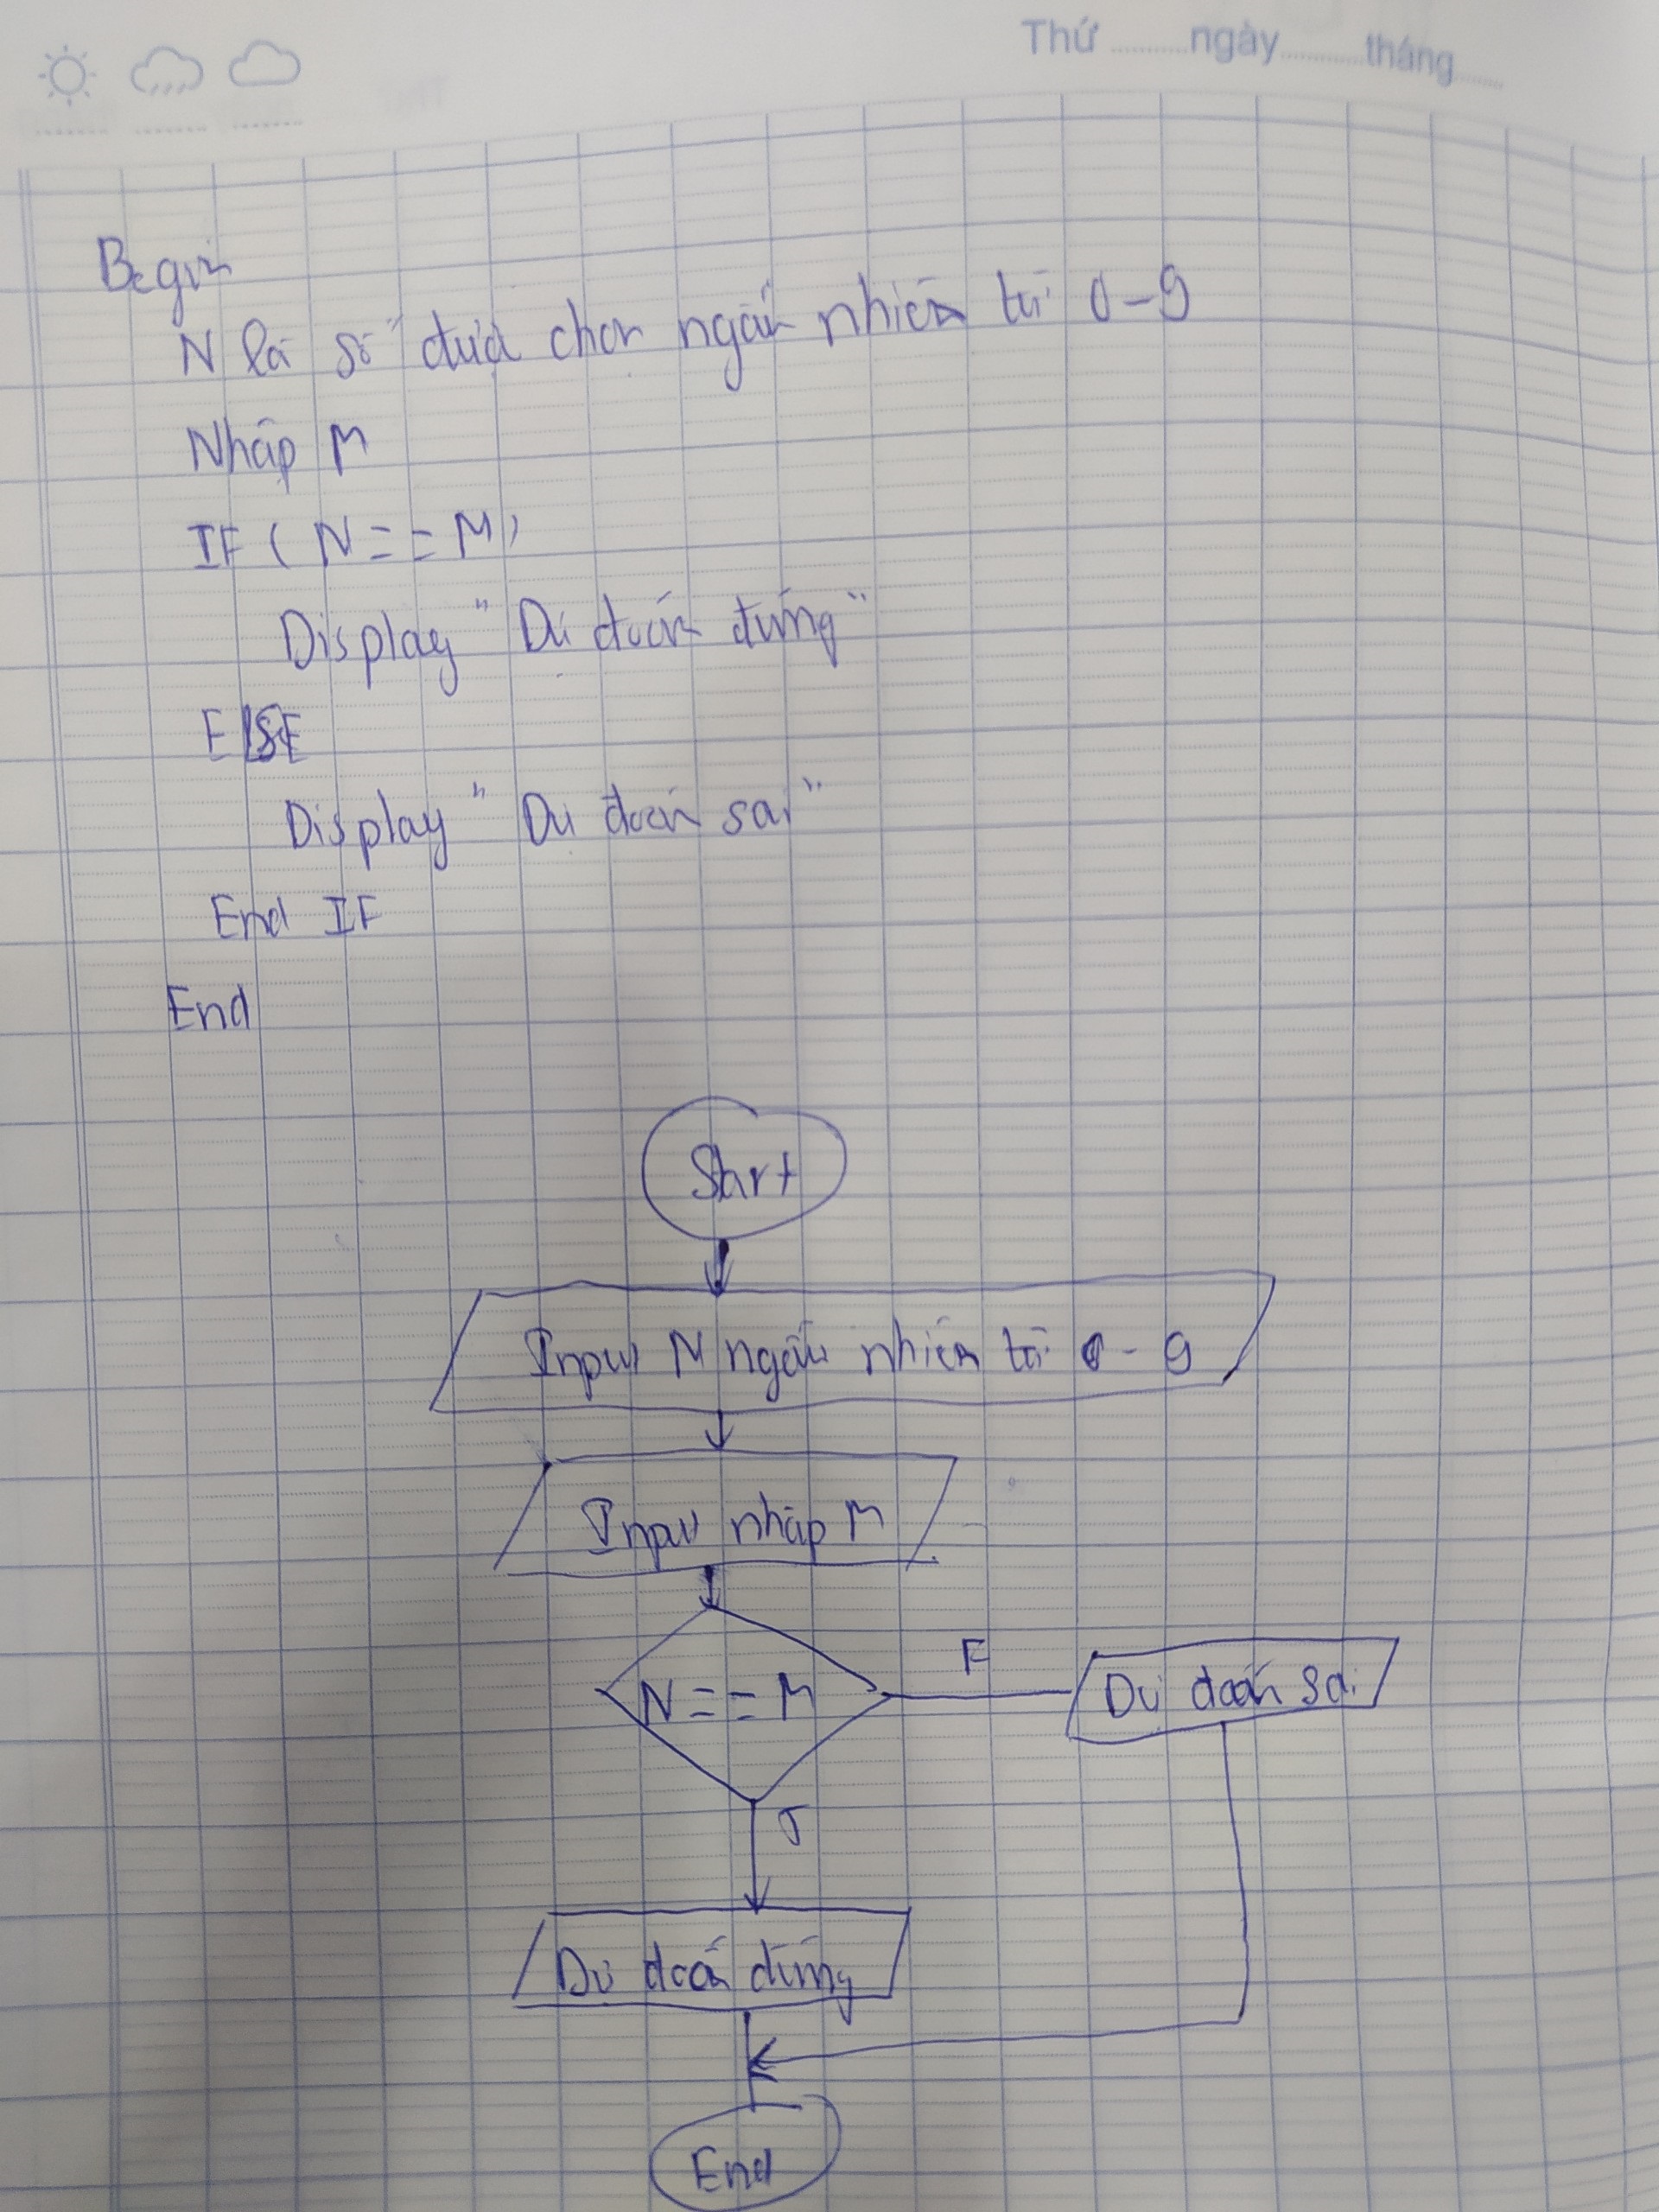 Thứ ........ ngày ........ tháng ......
Begin
N là số được chọn ngẫu nhiên từ 0-9
Nhập M
IF ( N == M )
Display " Dự đoán đúng "
ELSE
Display " Dự đoán sai "
End IF
End
Start
Input N ngẫu nhiên từ 0 - 9
Input nhập M
N == M
F
Dự đoán sai
T
Dự đoán đúng
End